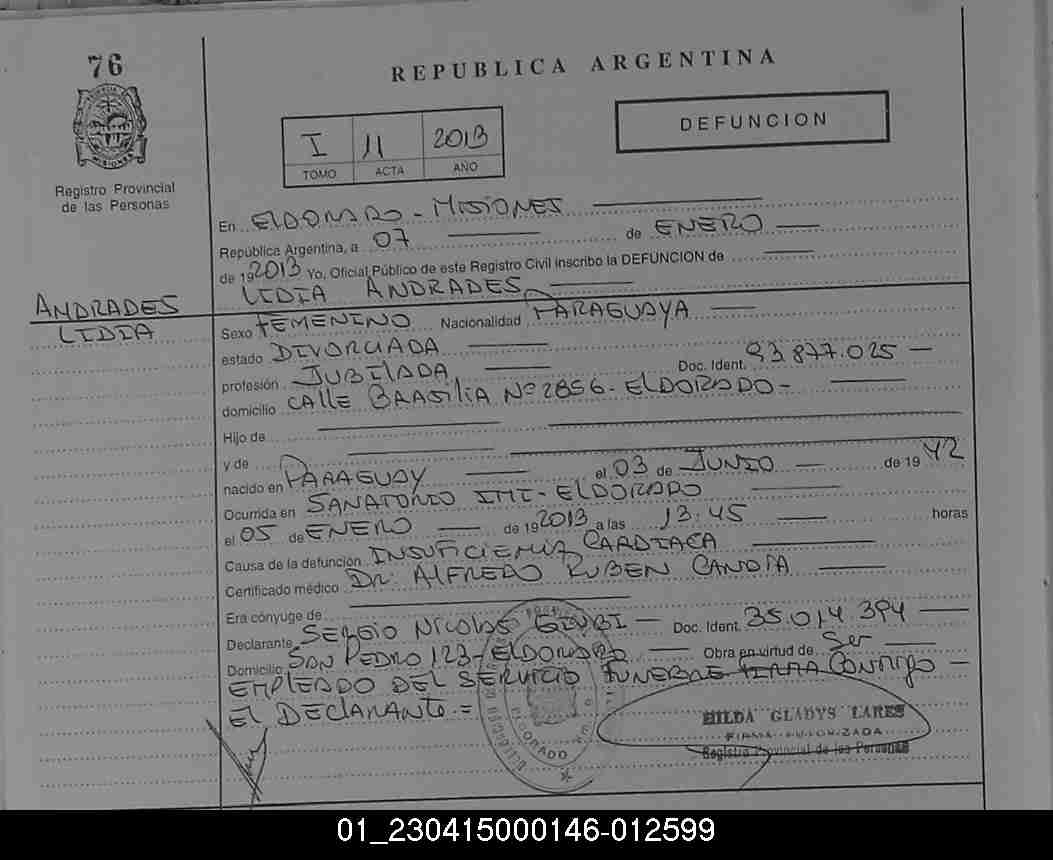 76
REPUBLICA ARGENTINA
I 11 2013
TOMO ACTA AÑO
DEFUNCION
Registro Provincial
de las Personas
En ELDORADO - MISIONES
República Argentina, a 07 de ENERO
de 19 2013 Yo, Oficial Público de este Registro Civil inscribo la DEFUNCION de
LIDIA ANDRADES
ANDRADES
LIDIA
Sexo FEMENINO Nacionalidad PARAGUAYA
estado DIVORCIADA
profesión JUBILADA Doc. Ident. 93.877.025 —
domicilio CALLE BRASILIA Nº 2856 - ELDORADO -
Hijo de
y de
nacido en PARAGUAY el 03 de JUNIO de 19 42
Ocurrida en SANATORIO IMI - ELDORADO
el 05 de ENERO de 19 2013 a las 13:45 horas
Causa de la defunción INSUFICIENCIA CARDIACA
Certificado médico DR. ALFREDO RUBEN CANDIA
Era cónyuge de
Declarante SERGIO NICOLAS Doc. Ident. 35.014.394
Domicilio SAN PEDRO 123 - ELDORADO Obra en virtud de Ser
EMPLEADO DEL SERVICIO FUNEBRE FIRMA CONMIGO —
EL DECLARANTE =
ELDORADO
HILDA GLADYS LARES
FIRMA AUTORIZADA
Registro Provincial de las Personas
01_230415000146-012599